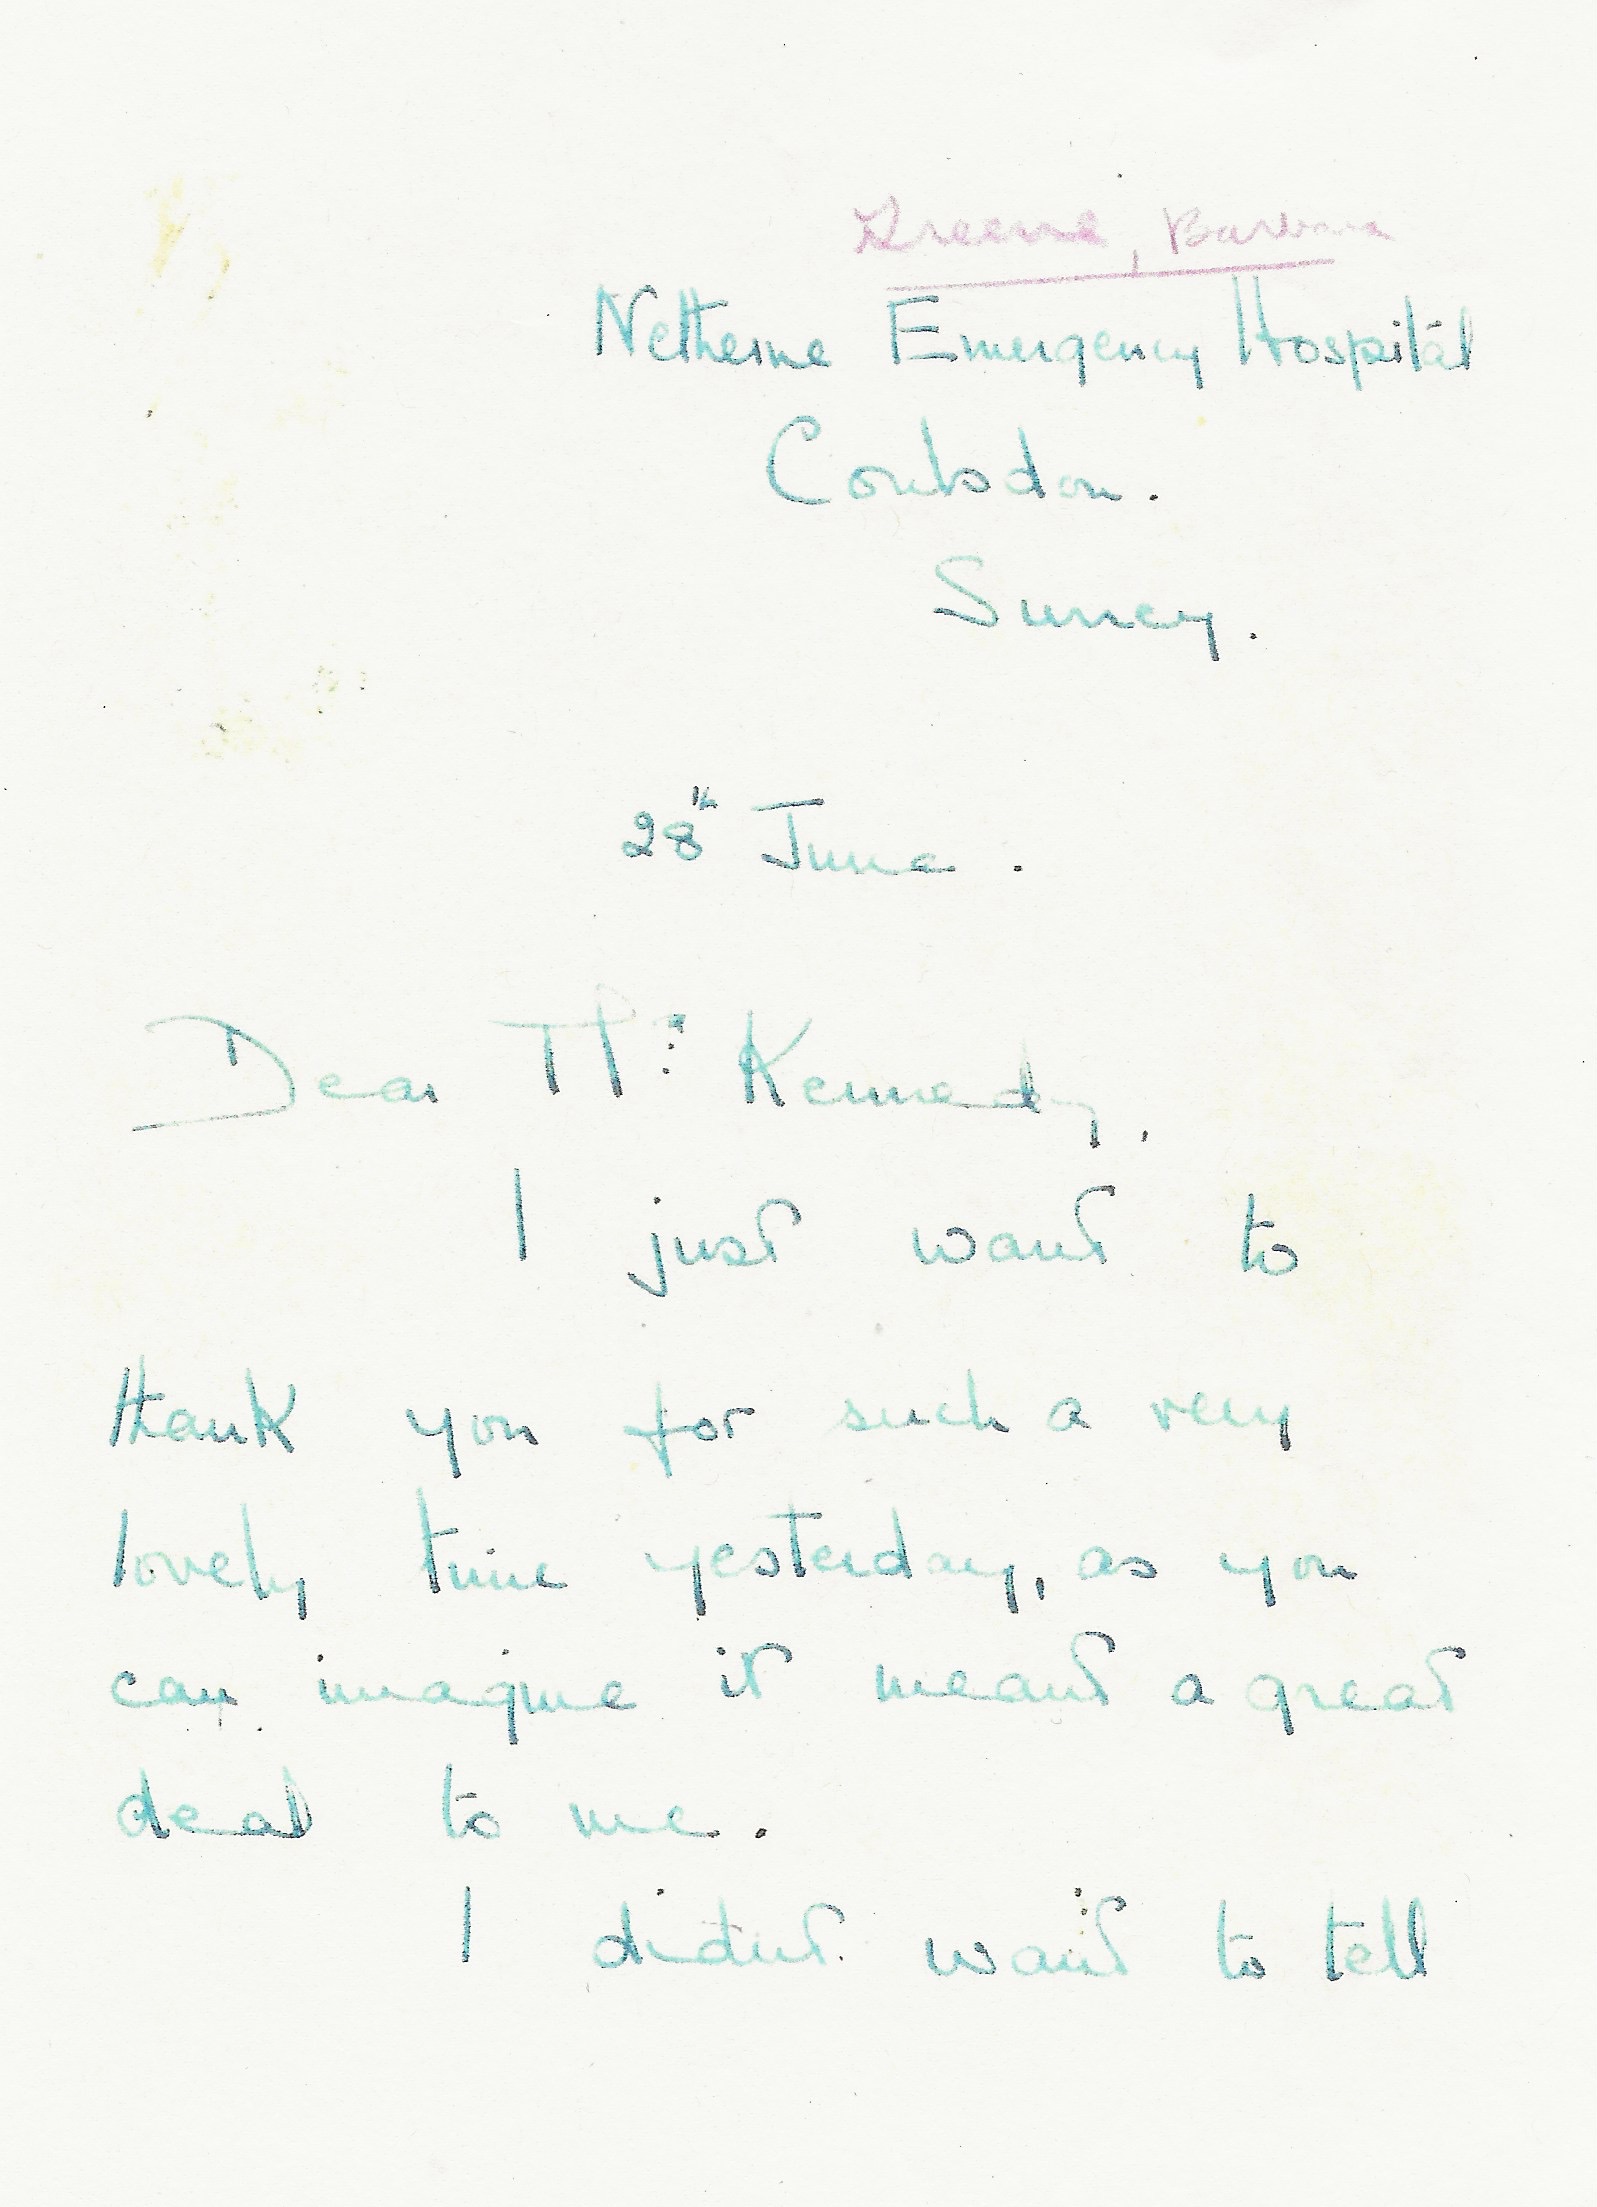 Greene, Barbara
Netherne Emergency Hospital
Coulsdon.
Surrey.
28th June.
Dear Mr. Kennedy,
I just want to
thank you for such a very
lovely time yesterday, as you
can imagine it meant a great
deal to me.
I didnt want to tell